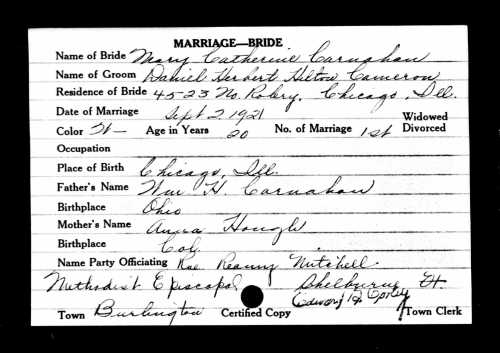 MARRIAGE—BRIDE
Name of Bride Mary Catherine Carnahan
Name of Groom Daniel Herbert Hilton Cameron
Residence of Bride 4523 No. Robey, Chicago, Ill.
Date of Marriage Sept 2 1921 Widowed
Color W— Age in Years 20 No. of Marriage 1st Divorced
Occupation
Place of Birth Chicago, Ill.
Father's Name Wm H. Carnahan
Birthplace Ohio
Mother's Name Anna Hough
Birthplace Col.
Name Party Officiating Mitchell.
Methodist Episcopal Shelburne Vt.
Town Burlington Certified Copy Town Clerk